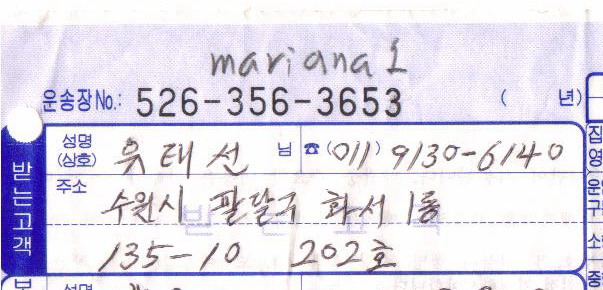 mariana 1
운송장No.: 526-356-3653 ( 년)
성명 (상호) 유태선 님 ☎ (011) 9130-6140
받는고객
주소 수원시 팔달구 화서1동
135-10 202호
성명